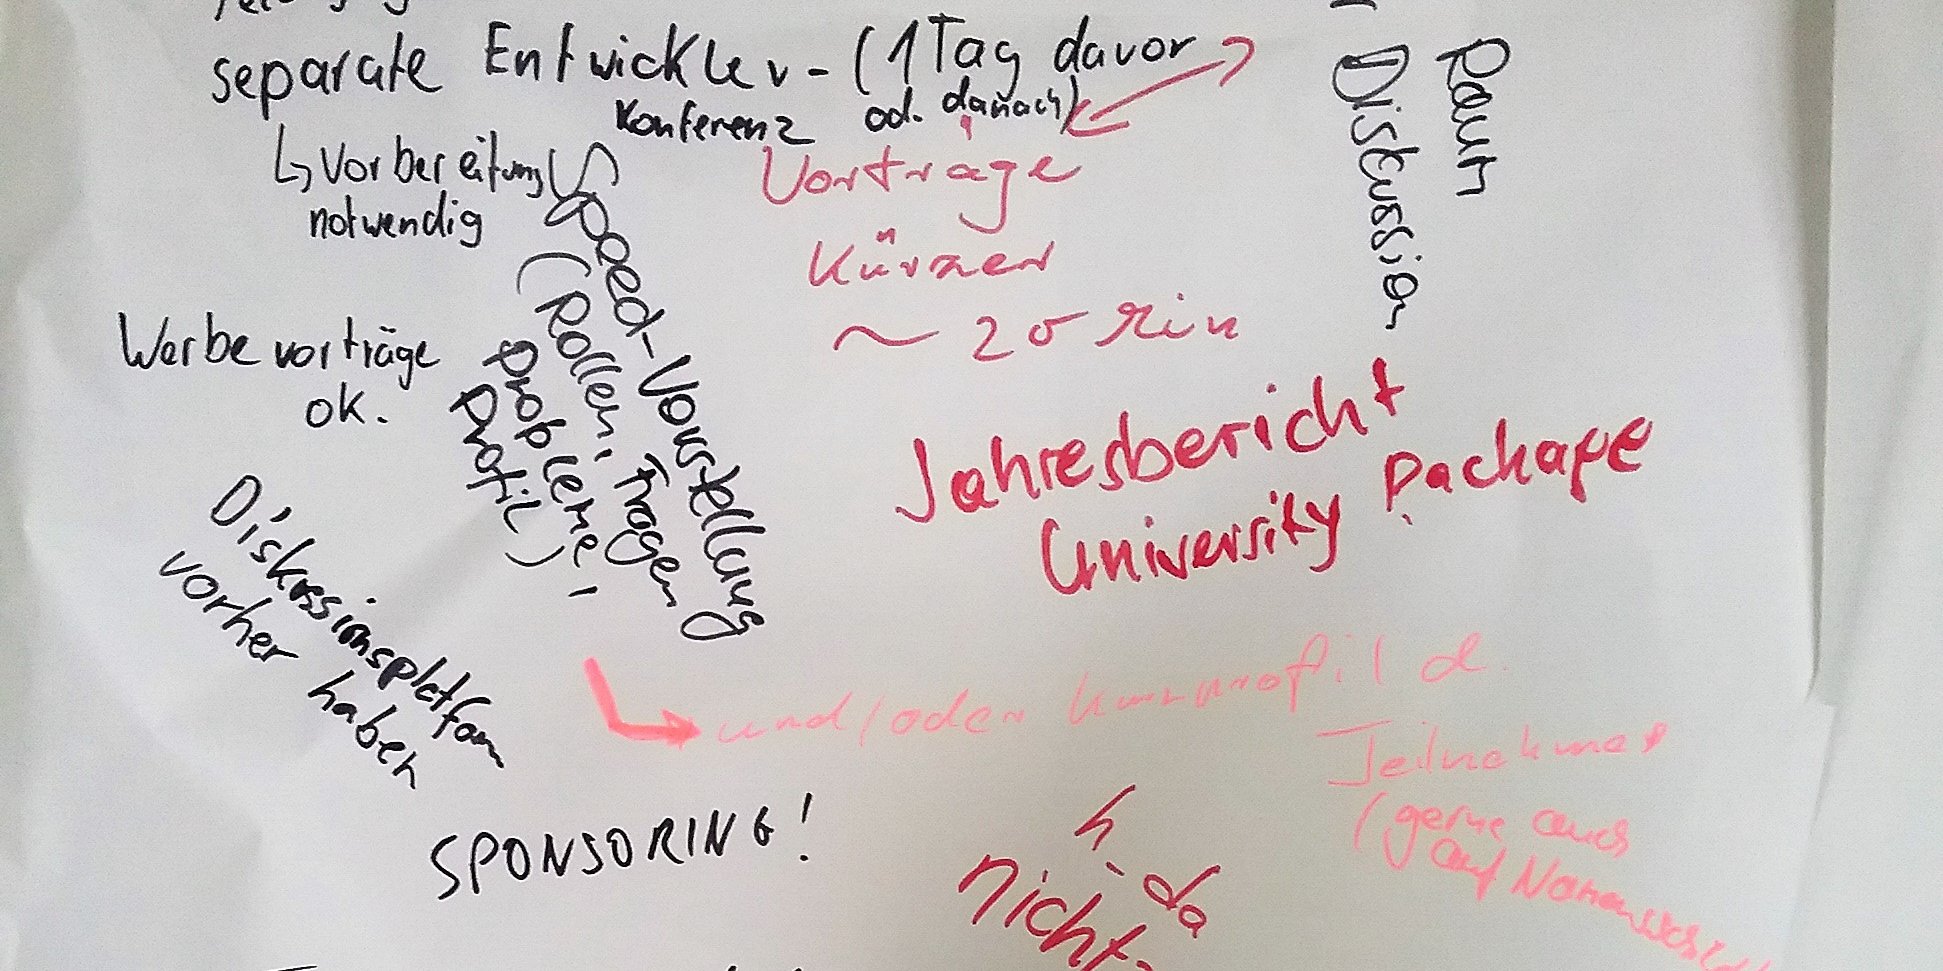 separate Entwickler- (1 Tag davor
Konferenz od. danach)
↳ Vorbereitung
notwendig
Speed-Vorstellung
(Rollen, Fragen
Probleme,
Profil)
Vorträge
Kürzer
~ 20 Min
Raum
Diskussion
Werbevorträge
ok.
Jahresbericht
University Package
Diskussionsplatform
vorher haben
und/oder Kurzprofil d.
Teilnehmer
(gerne auch
auf Namensschild
SPONSORING!
h-da
nicht